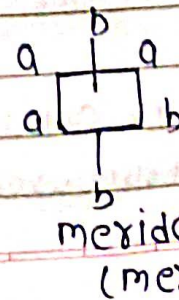 b
a a
a b
b
merido
(me